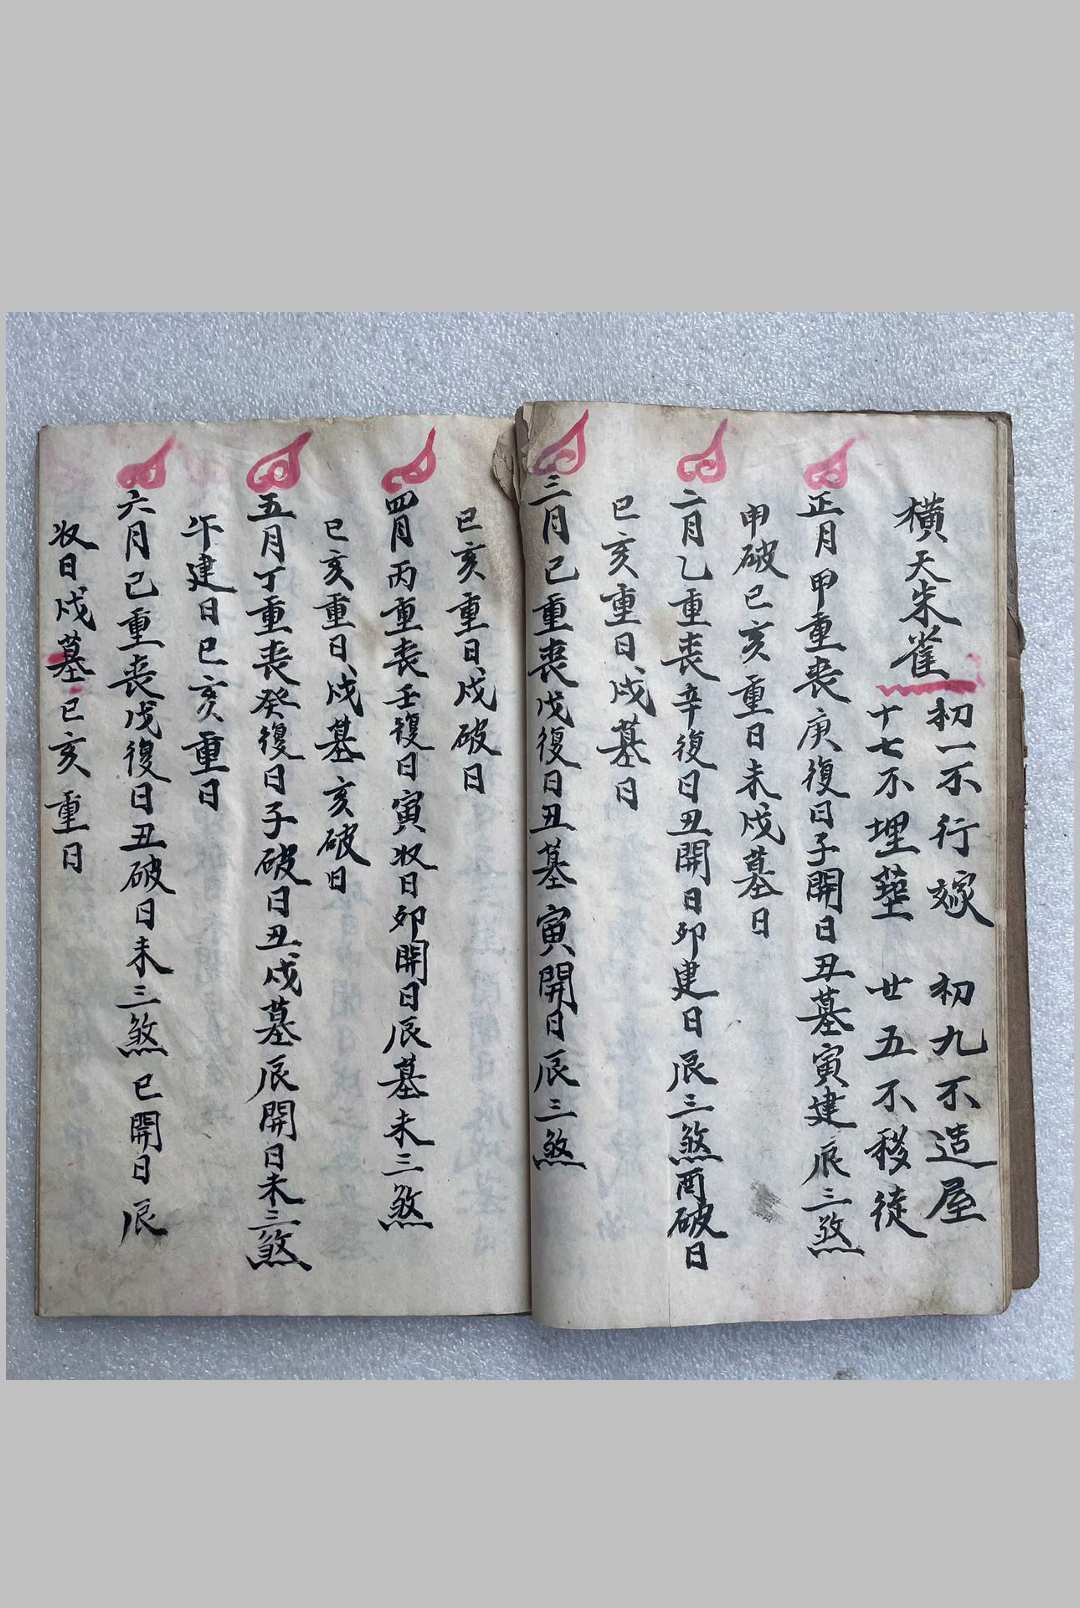 横天朱雀
初一不行嫁 初九不造屋
十七不埋塟 廿五不移徒
正月甲重丧庚復日子開日丑墓寅建辰三煞
申破巳亥重日未戌墓日
二月乙重丧辛復日丑開日卯建日辰三煞酉破日
巳亥重日戌墓日
三月己重丧戊復日丑墓寅開日辰三煞
巳亥重日戌破日
四月丙重丧壬復日寅收日卯開日辰墓未三煞
巳亥重日戌墓亥破日
五月丁重丧癸復日子破日丑戌墓辰開日未三煞
午建日巳亥重日
六月己重丧戊復日丑破日未三煞巳開日辰
收日戌墓巳亥重日